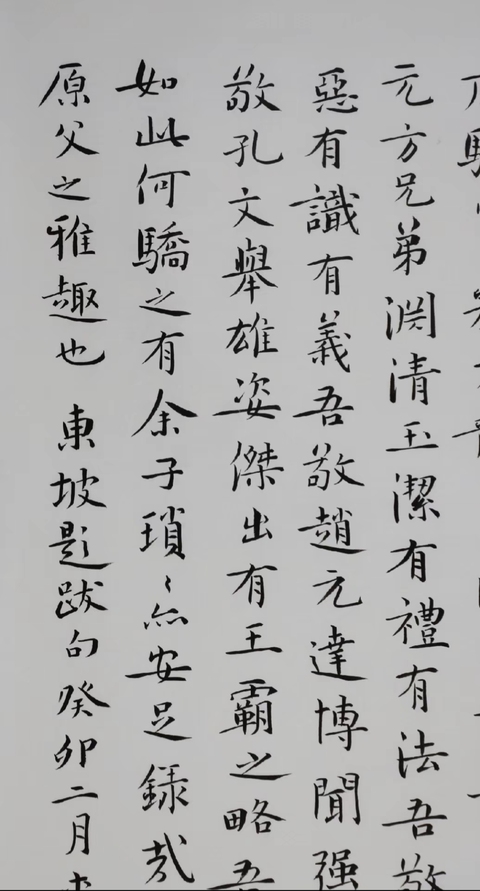 元方兄弟渊清玉潔有禮有法吾敬
惡有識有義吾敬趙元達博聞强
敬孔文舉雄姿傑出有王霸之略吾
如此何驕之有余子瑣〻亦安足録哉
原父之雅趣也 東坡題跋句癸卯二月